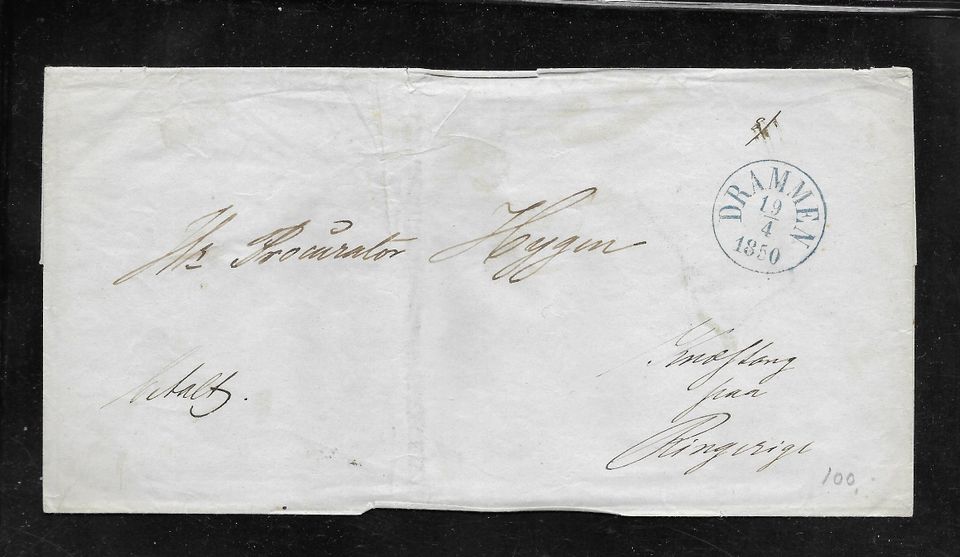 DRAMMEN
19/4
1850
Hr Procurator Hygen
betalt.
paa
Ringerige
100